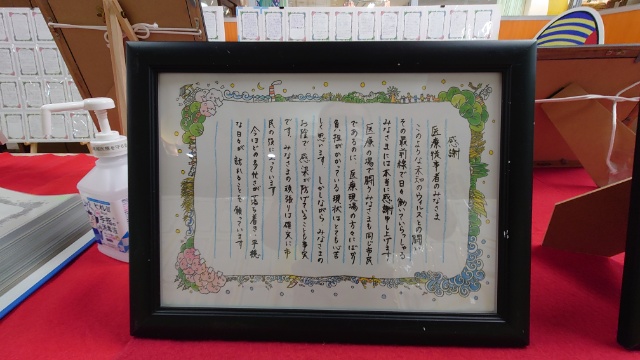 感謝
医療従事者のみなさま
このような未知のウィルスとの闘い
その最前線で日々働いていらっしゃる
みなさまには本当に感謝申し上げます。
医療の場で闘うみなさまも同じ市民
であるのに、医療現場の方々にばかり
負担がかかっている現状はとても心苦
しく思います。しかしながら、みなさまの
お陰で感染が防げていることも事実
です。みなさまの頑張りは確実に市
民の為になっています。
今はこの事態が一刻も早く落ち着き、平穏
な日々が訪れることを願っています。